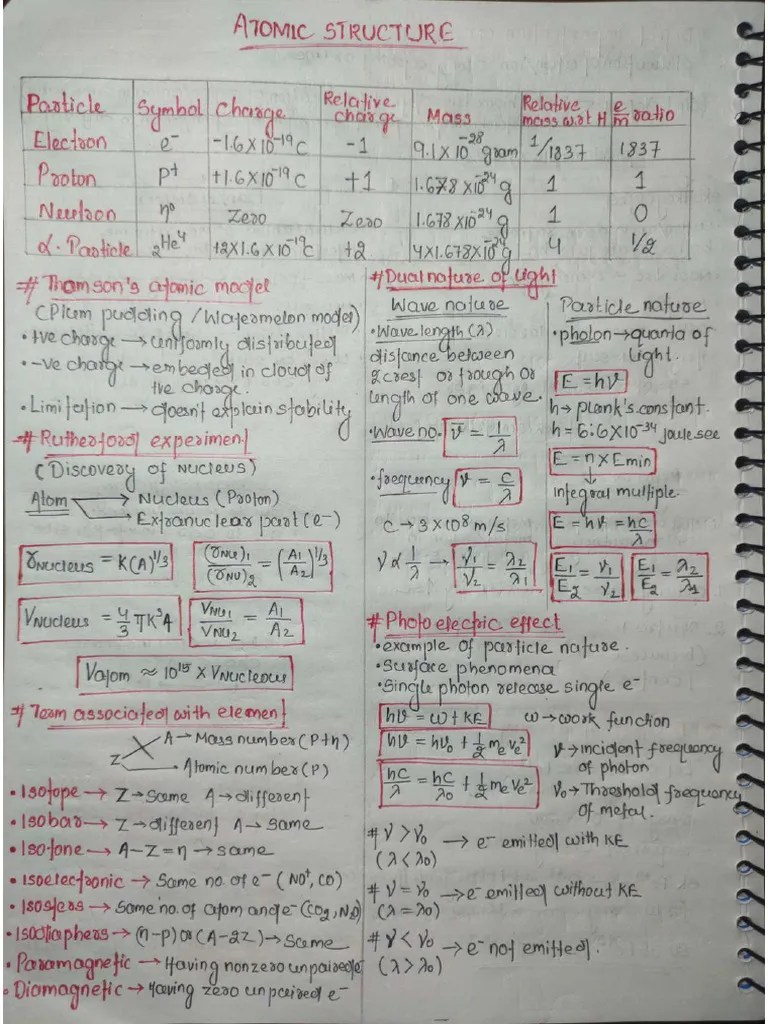 ATOMIC STRUCTURE
Particle Symbol Charge Relative charge Mass Relative mass wrt H e/m ratio
Electron e⁻ -1.6×10⁻¹⁹C -1 9.1×10⁻²⁸ gram 1/1837 1837
Proton P⁺ +1.6×10⁻¹⁹C +1 1.678×10⁻²⁴g 1 1
Neutron n⁰ Zero Zero 1.678×10⁻²⁴g 1 0
α·Particle ₂He⁴ +2×1.6×10⁻¹⁹C +2 4×1.678×10⁻²⁴g 4 1/2
# Thamson's atomic model
(Plum pudding / Watermelon model)
• +ve charge → uniformly distributed
• -ve charge → embeded in cloud of
+ve charge.
• Limitation → doesn't explain stability
# Rutherford experiment
(Discovery of Nucleus)
Atom → Nucleus (Proton)
→ Extranuclear part (e⁻)
rNucleus = K(A)^1/3 (rNu)₁/(rNu)₂ = (A₁/A₂)^1/3
VNucleus = 4/3 πK³A VNu₁/VNu₂ = A₁/A₂
Vatom ≈ 10¹⁵ × VNucleous
# Term associated with element
A → Mass number (P+n)
Z
• Atomic number (P)
• Isotope → Z → Same A → different
• Isobar → Z → different A → Same
• Isotone → A-Z = n → same
• Isoelectronic → Same no. of e⁻ (NO⁺, CO)
• Isosters → Same no. of atom and e⁻ (CO₂, N₂O)
• Isodiaphers → (n-p) or (A-2Z) → Same
• Paramagnetic → Having nonzero unpaired e⁻
• Diamagnetic → Having zero unpaired e⁻
# Dual nature of light
Wave nature
• Wave length (λ)
distance between
2 crest or trough or
length of one wave.
• Wave no. ν̅ = 1/λ
• frequency ν = C/λ
C → 3×10⁸ m/s
ν ∝ 1/λ → ν₁/ν₂ = λ₂/λ₁
Particle nature
• photon → quanta of
Light.
E = hν
h → plank's constant.
h = 6.6×10⁻³⁴ joule sec
E = n × Emin
integral multiple.
E = hν = hC/λ
E₁/E₂ = ν₁/ν₂ E₁/E₂ = λ₂/λ₁
# Photo electric effect
• example of particle nature.
• Surface phenomena
• Single photon release single e⁻
hν = ω + KE ω → work function
hν = hν₀ + 1/2 mₑvₑ² ν → incident frequency
of photon
hC/λ = hC/λ₀ + 1/2 mₑvₑ² ν₀ → Threshold frequency
of metal.
# ν > ν₀ → e⁻ emitted with KE
(λ < λ₀)
# ν = ν₀ → e⁻ emitted without KE
(λ = λ₀)
# ν < ν₀ → e⁻ not emitted.
(λ > λ₀)